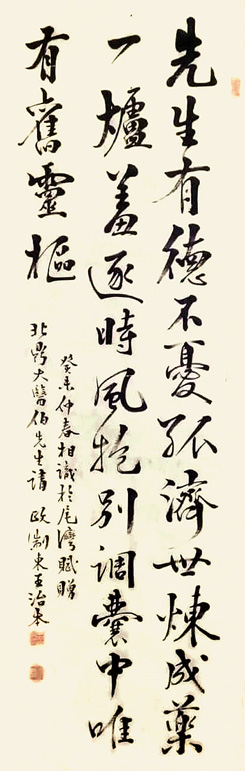 先生有德不憂孤濟世煉成藥
一爐羞逐時風抱別調囊中唯
有舊靈樞
癸未仲春相識於尾灣賦贈
北鼎大醫伯先生請